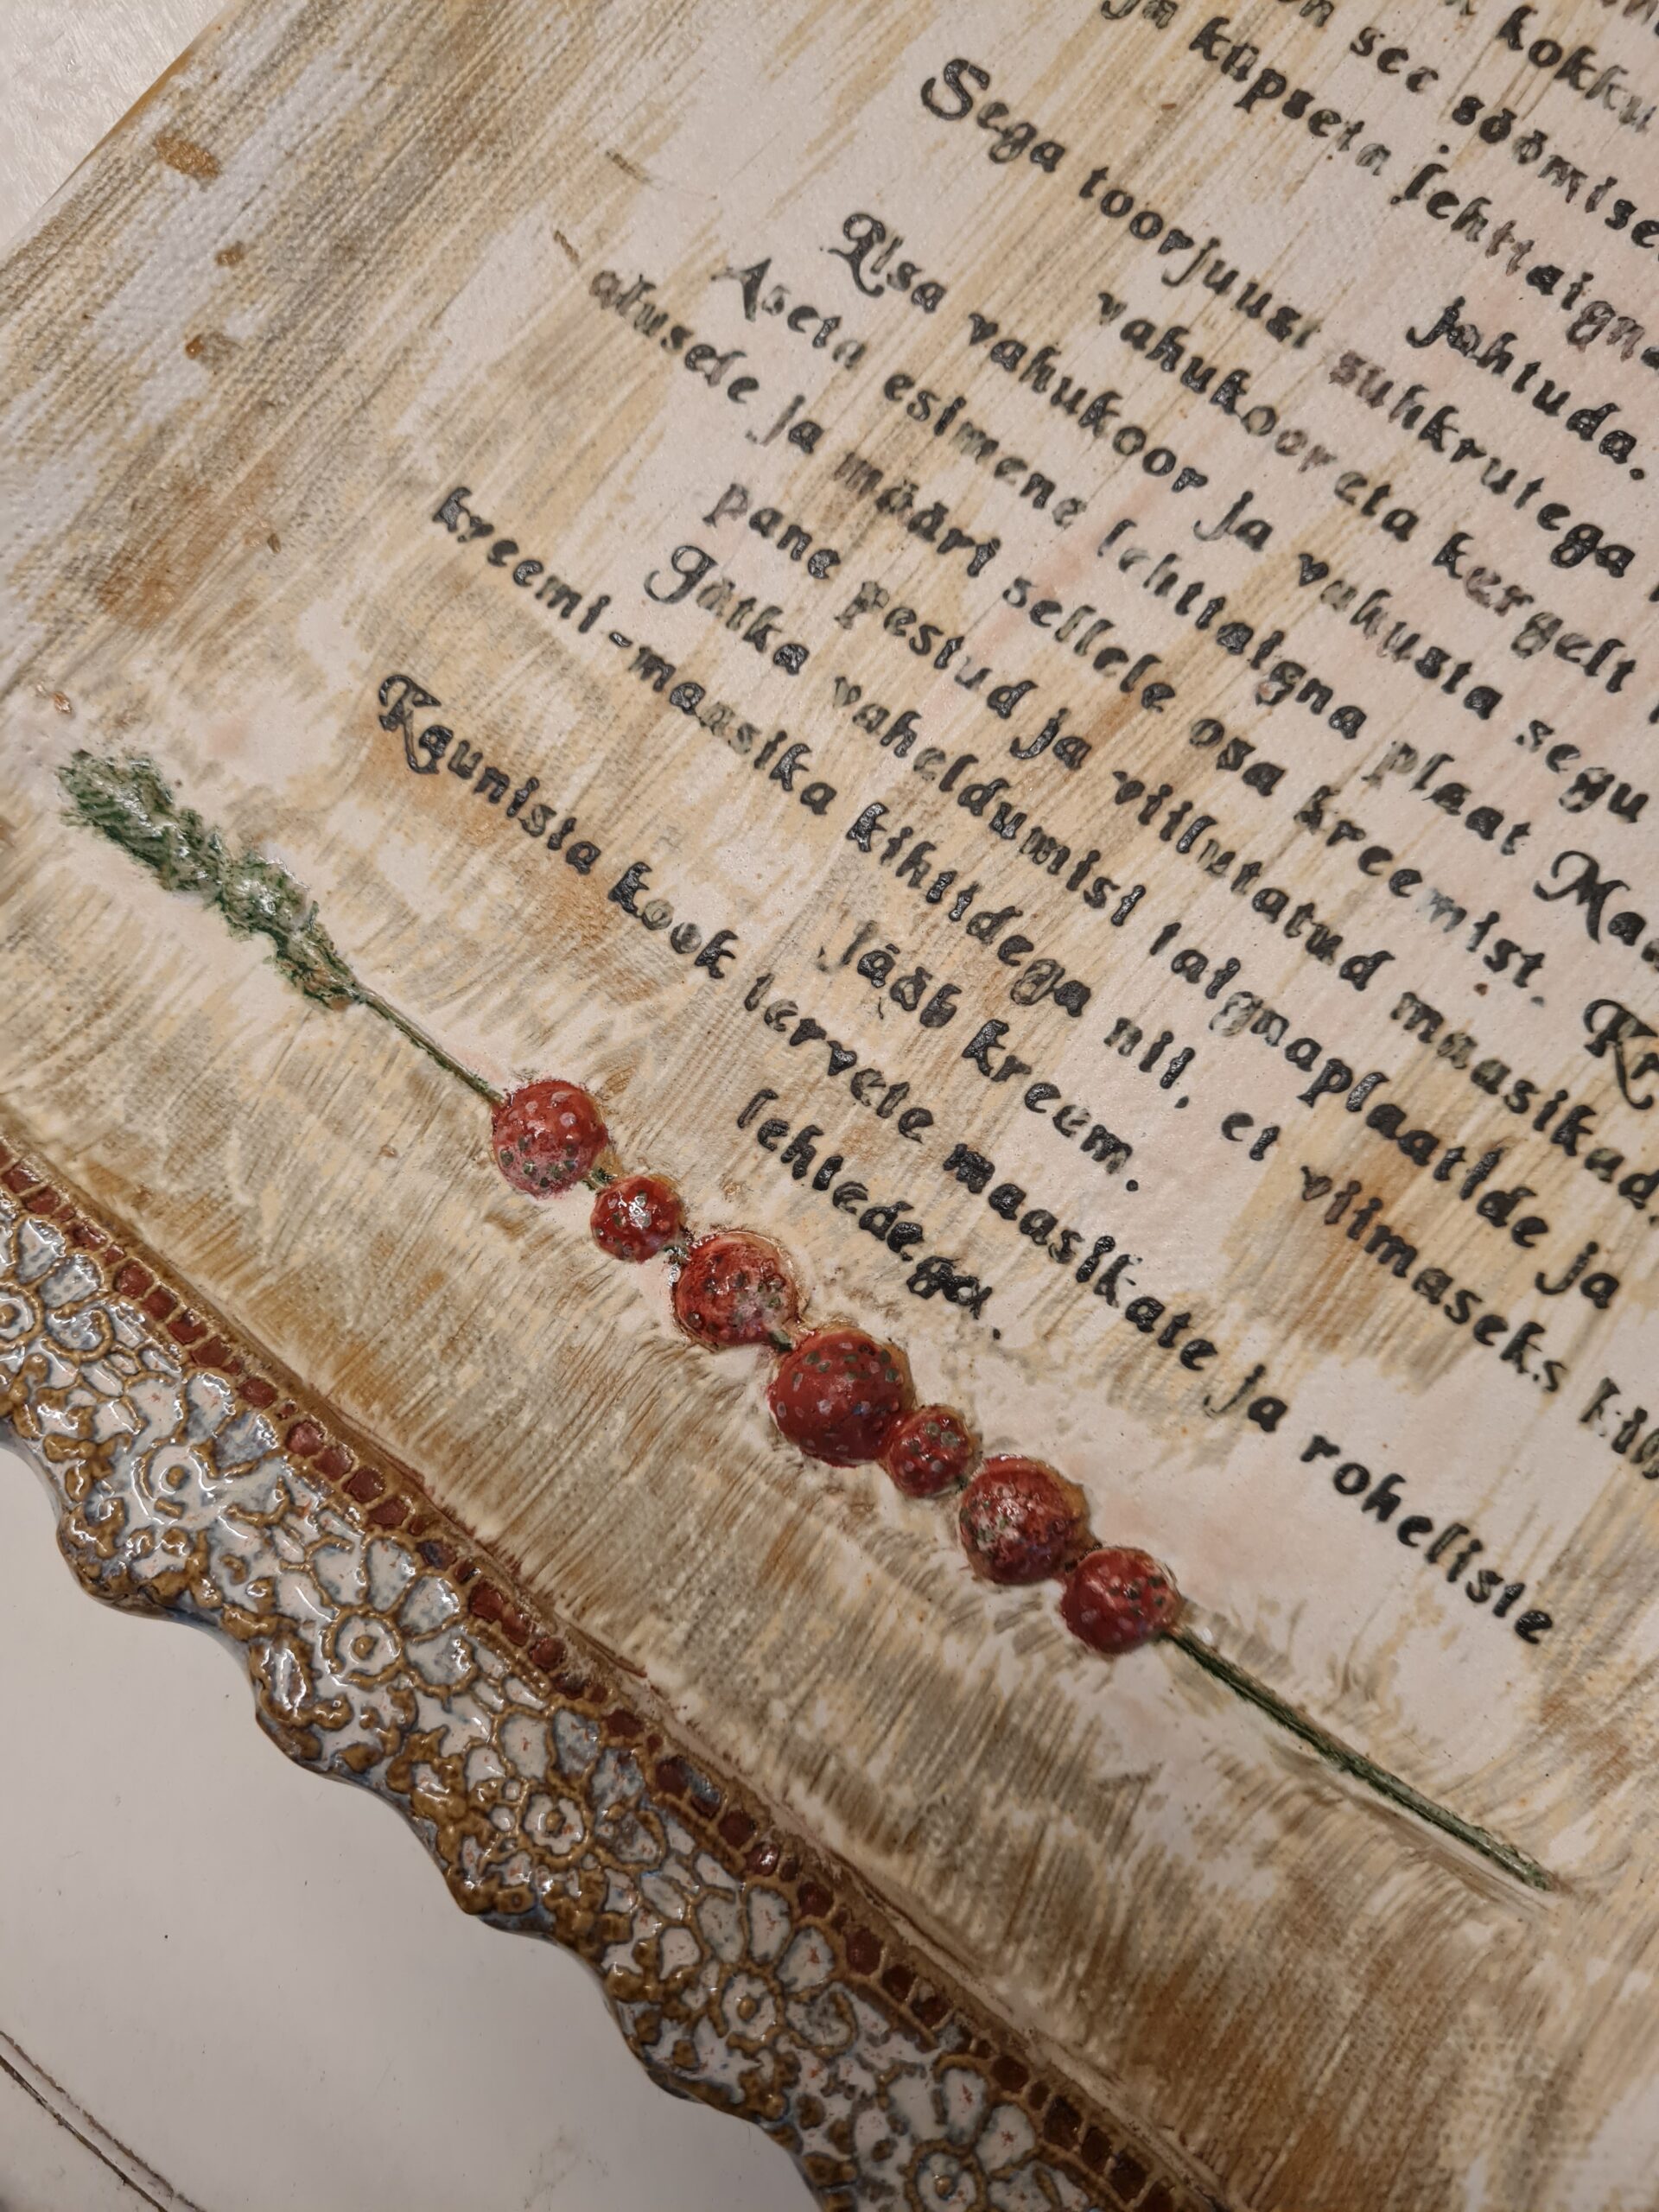 kokku
on see söömise
ja küpseta lehttaigna
jahtuda.
Sega toorjuust suhkrutega
vahukooreta kergelt
Lisa vahukoor ja vahusta segu
Aseta esimene lehttaigna plaat
alusele ja määri sellele osa kreemist.
pane pestud ja viilutatud maasikud.
Jätka vaheldumisi taignaplaatide ja
kreemi-maasika kihtidega nii, et viimaseks
jääb kreem.
Kaunista kook tervete maasikate ja roheliste
lehtedega.